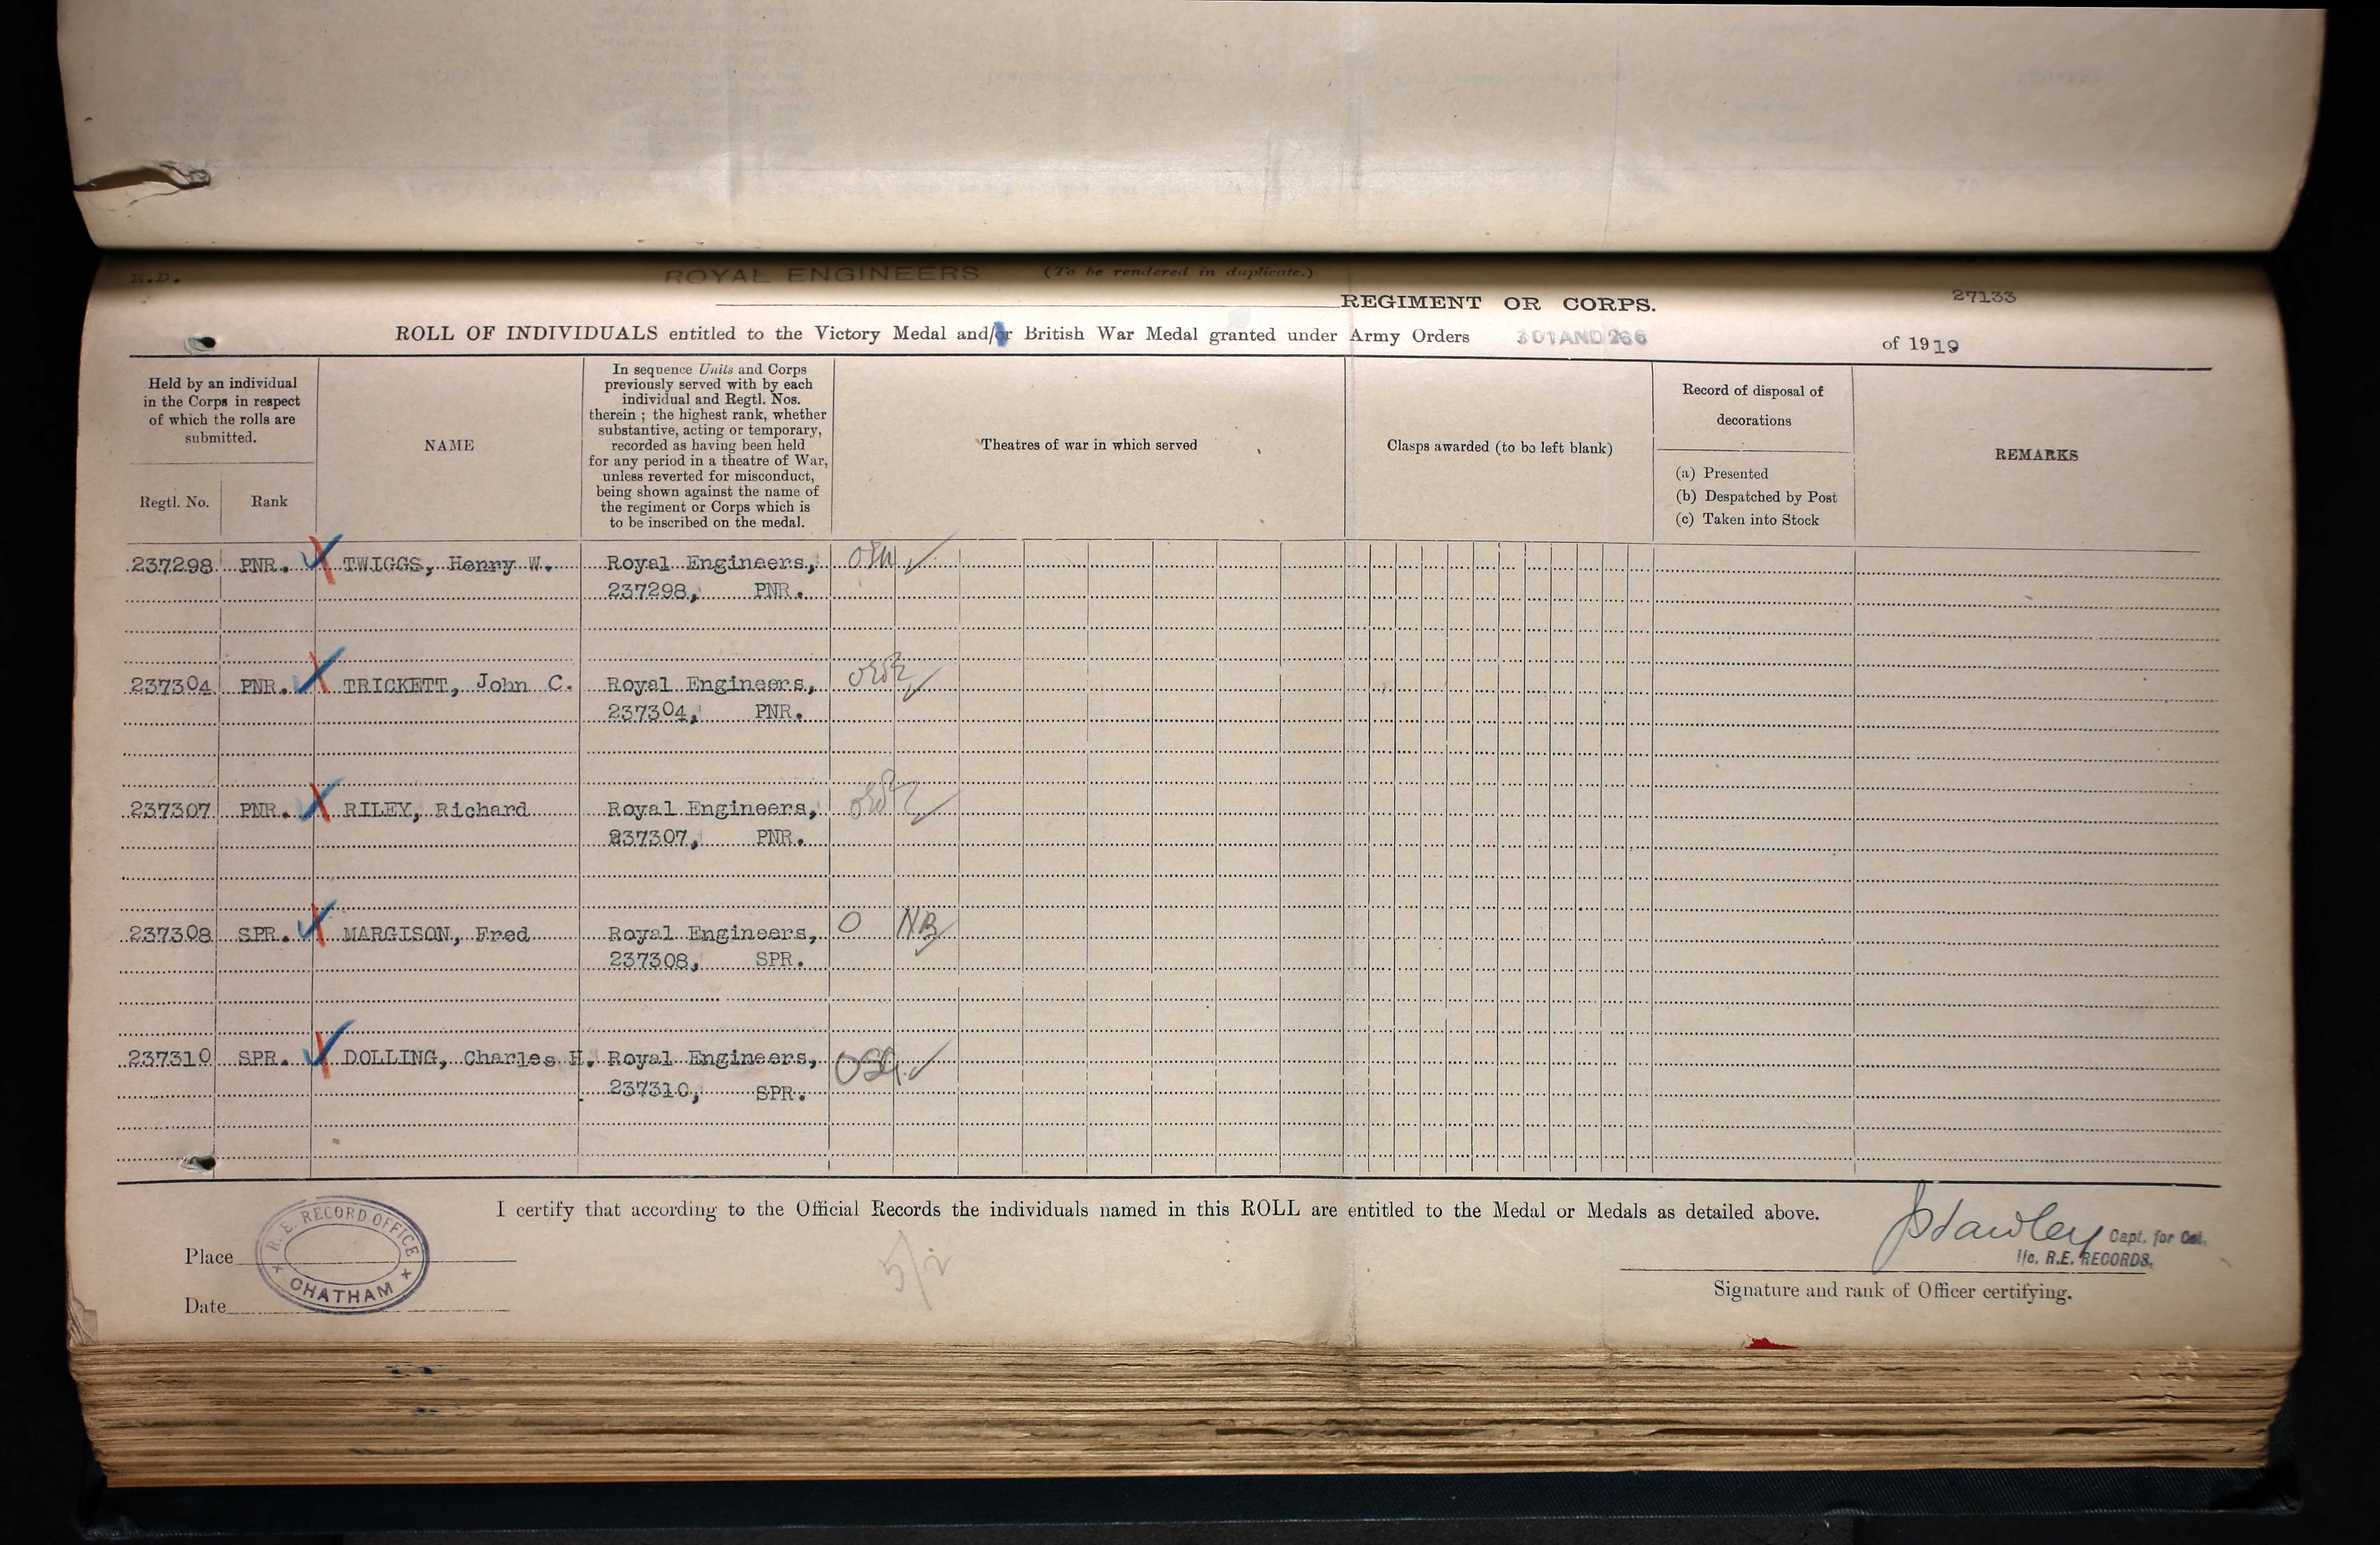 E.D.
ROYAL ENGINEERS (To be rendered in duplicate.)
REGIMENT OR CORPS.
27133
ROLL OF INDIVIDUALS entitled to the Victory Medal and/or British War Medal granted under Army Orders 301 AND 266 of 1919
Held by an individual
in the Corps in respect
of which the rolls are
submitted.
Regtl. No. Rank
NAME
In sequence Units and Corps
previously served with by each
individual and Regtl. Nos.
therein ; the highest rank, whether
substantive, acting or temporary,
recorded as having been held
for any period in a theatre of War,
unless reverted for misconduct,
being shown against the name of
the regiment or Corps which is
to be inscribed on the medal.
Theatres of war in which served
Clasps awarded (to be left blank)
Record of disposal of
decorations
(a) Presented
(b) Despatched by Post
(c) Taken into Stock
REMARKS
237298 PNR. TWIGGS, Henry W. Royal Engineers,
237298, PNR.
237304 PNR. TRICKETT, John C. Royal Engineers,
237304, PNR.
237307 PNR. RILEY, Richard Royal Engineers,
237307, PNR.
237308 SPR. MARGISON, Fred Royal Engineers, O NB
237308, SPR.
237310 SPR. DOLLING, Charles H. Royal Engineers,
237310, SPR.
I certify that according to the Official Records the individuals named in this ROLL are entitled to the Medal or Medals as detailed above.
Place
R. E. RECORD OFFICE
CHATHAM
Date
5/2
Capt. for Col.
I/c. R.E. RECORDS.
Signature and rank of Officer certifying.